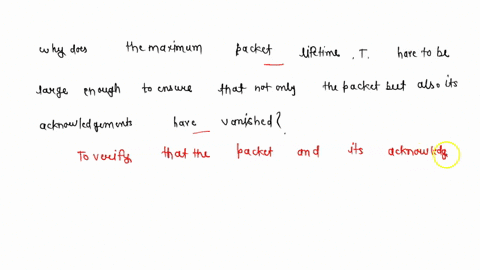 why does the maximum packet lifetime, T. have to be
large enough to ensure that not only the packet but also its
acknowledgements have vanished?
To verify that the packet and its acknowledg